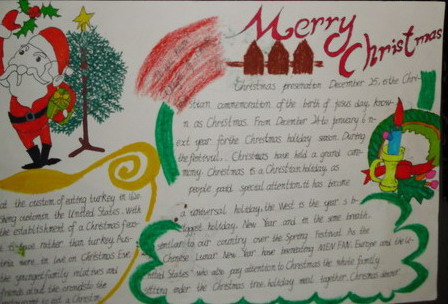 Merry Christmas
Christmas presentation December 25, is the Chri-
stian commemoration of the birth of jesus day, know-
n as Christmas. From December 24 to january 6 n-
ext year for the Christmas holiday season. During
the festival, Christmas have held a grand cere-
mony. Christmas is a Christian holiday, as
people paid special attention, it has become
a universal holiday, the West is the year's b-
iggest holiday, New Year and in the same breath,
similar to our country over the Spring Festival. As the
Chinese Lunar New Year have breaking NIEN FAN, Europe and the U-
nited States' who also pay attention to Christmas the whole family
sitting under the Christmas tree, holiday meal together. Christmas dinner
at the custom of eating turkey in
the United States, with
the establishment of a Christmas
rather than turkey,
were in love on Christmas Eve,
the youngest family relatives and
friends
to eat a